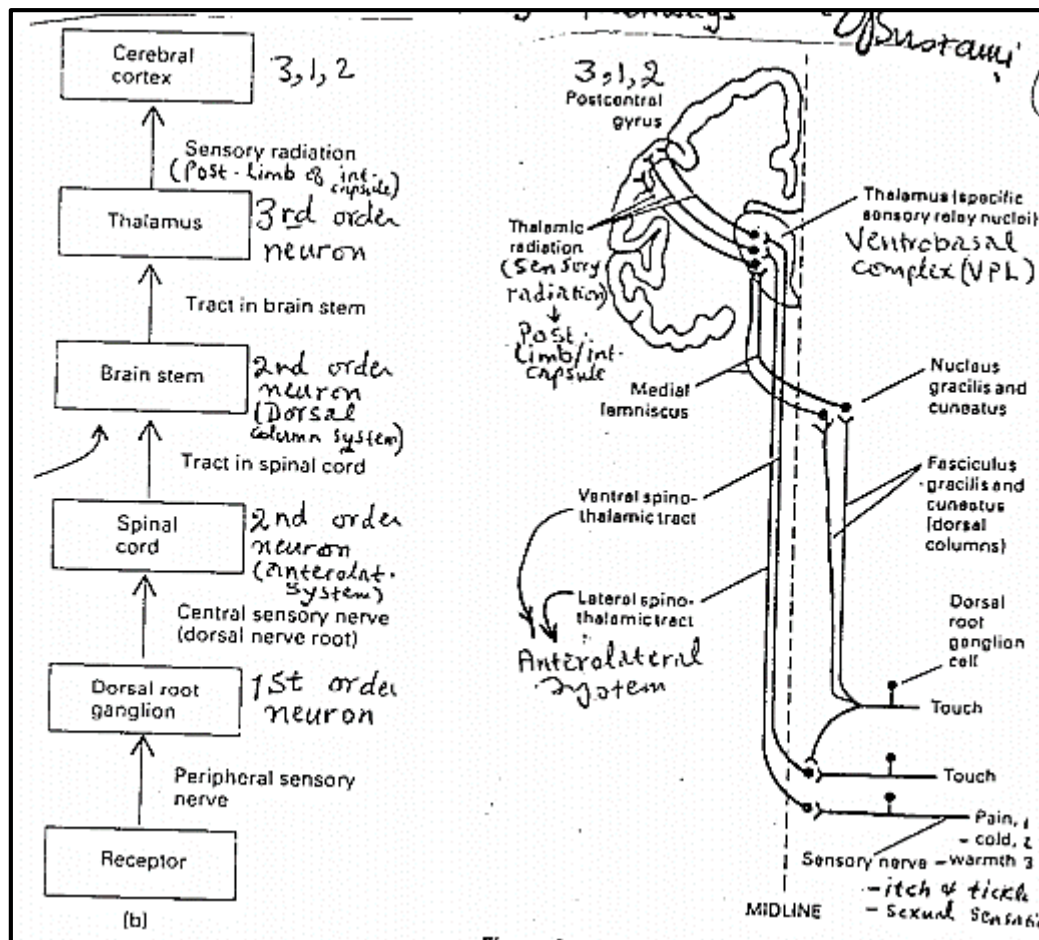 Bustami
Cerebral
cortex
3, 1, 2
Sensory radiation
(Post-Limb of int-
capsule)
Thalamus
3rd order
neuron
Tract in brain stem
Brain stem
2nd order
neuron
(Dorsal
column system)
Tract in spinal cord
Spinal
cord
2nd order
neuron
(anterolat-
system)
Central sensory nerve
(dorsal nerve root)
Dorsal root
ganglion
1st order
neuron
Peripheral sensory
nerve
Receptor
(b)
3,1,2
Postcentral
gyrus
Thalamic
radiation
(sensory
radiation)
Post.
Limb/int-
capsule
Thalamus (specific
sensory relay nuclei)
Ventrobasal
complex (VPL)
Medial
lemniscus
Nucleus
gracilis and
cuneatus
Ventral spino-
thalamic tract
Fasciculus
gracilis and
cuneatus
(dorsal
columns)
Lateral spino-
thalamic tract
Anterolateral
system
Dorsal
root
ganglion
cell
Touch
Touch
Pain, 1
- cold, 2
Sensory nerve - warmth 3
- itch & tickle
- sexual sensati
MIDLINE